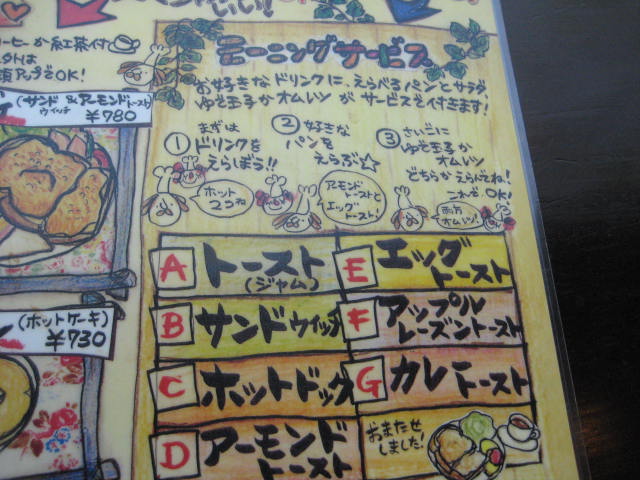 いい!
コーヒーか紅茶付
アップでOK!
(サンド
ウィッチ
&アーモンドトースト)
¥780
(ホットケーキ)
¥730
モーニングサービス
お好きなドリンクに、えらべるパンとサラダ、
ゆで玉子かオムレツ がサービスで付きます!
① まずは
ドリンクを
えらぼう!!
ホット
ココね
② 好きな
パンを
えらぶ☆
アーモンド
トーストと
エッグ
トースト!
③ さいごに
ゆで玉子か
オムレツ
どちらかえらんでね!
これでOK!
両方
オムレツ!
A トースト
(ジャム)
B サンドウィッチ
C ホットドック
D アーモンド
トースト
E エッグ
トースト
F アップル
レーズントースト
G カレー
トースト
おまたせ
しました!